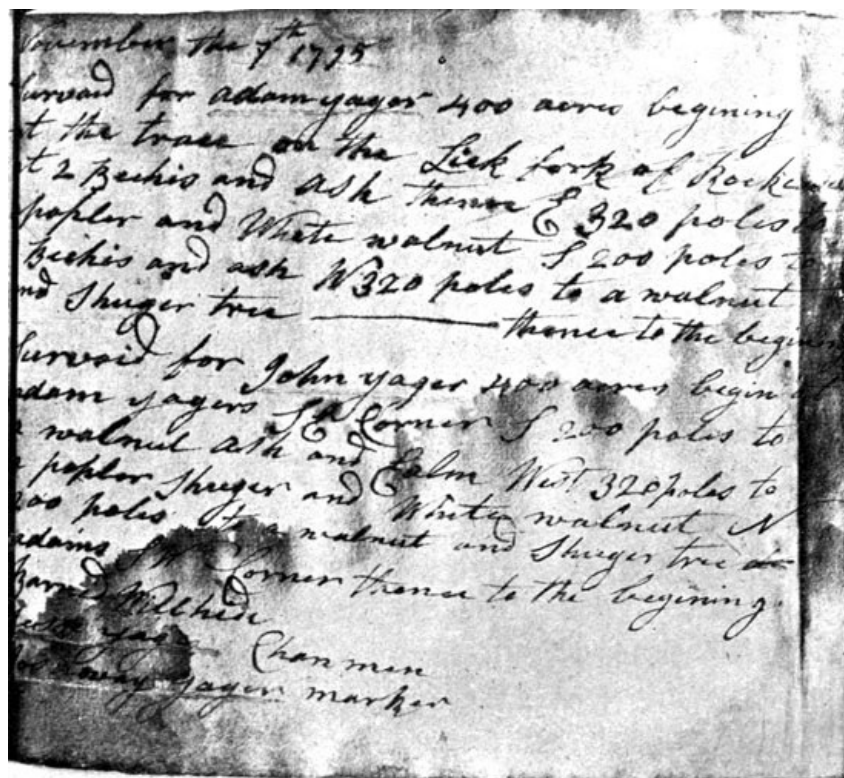 November the 7th 1795
Survaid for adam yager 400 acres begining
at the trace on the Lick fork of
at 2 Bechis and ash thence E 320 poles to
popler and White walnut S 200 poles to
Bechis and ash W 320 poles to a walnut
and Shuger tree thence to the begining
Survaid for John yager 400 acres begin at
adam yagers SE Corner S 200 poles to
a walnut ash and Ealm West 320 poles to
a popler Shuger and White walnut N
200 poles to a walnut and Shuger tree at
adams SW Corner thence to the begining
Willhide
yag
Chan men
yager marker